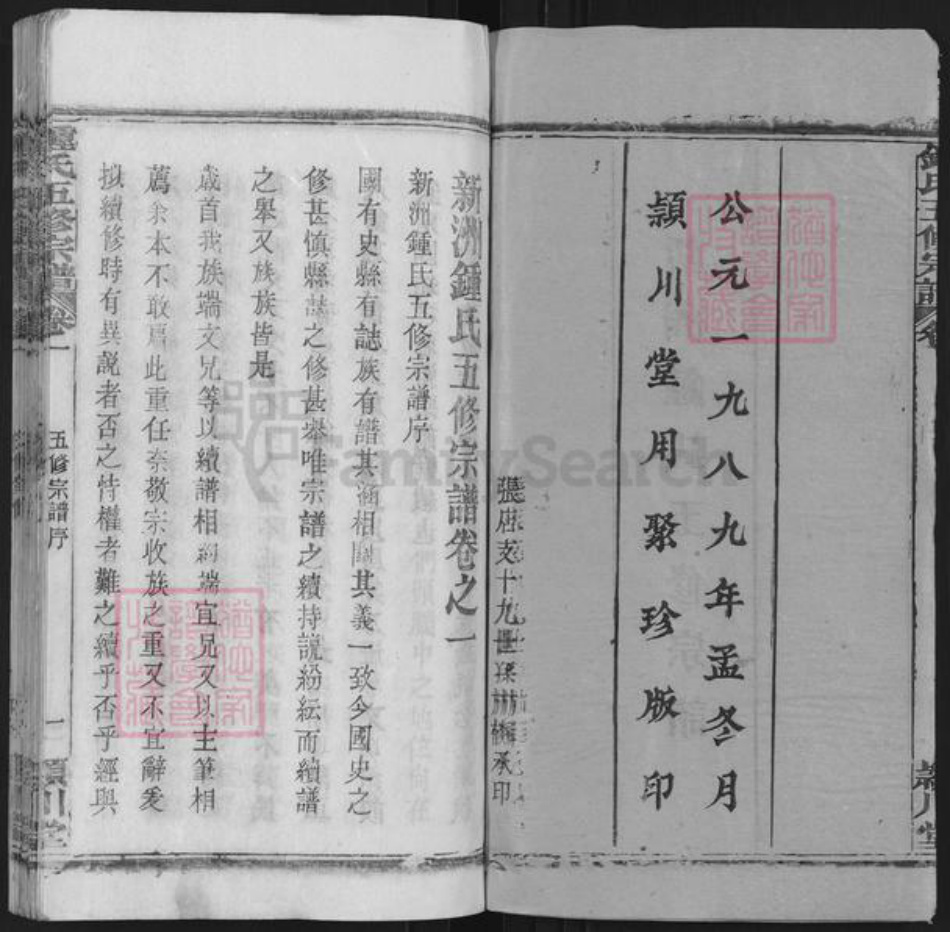 公元一九八九年孟冬月
潁川堂用聚珍版印
新洲鍾氏五修宗譜卷之一
新洲鍾氏五修宗譜序
國有史縣有誌族有譜其涵相關其義一致今國史之
修甚慎縣誌之修甚舉唯宗譜之續持說紛紜而續譜
之舉又族族皆是
歲首我族端文兄等以續譜相約端宜兄又以主筆相
薦余本不敢肩此重任奈敬宗收族之重又不宜辭爰
拟續修時有異說者否之恃權者難之續乎否乎經與
五修宗譜序
一
潁川堂
鍾氏五修宗譜
卷一
FamilySearch